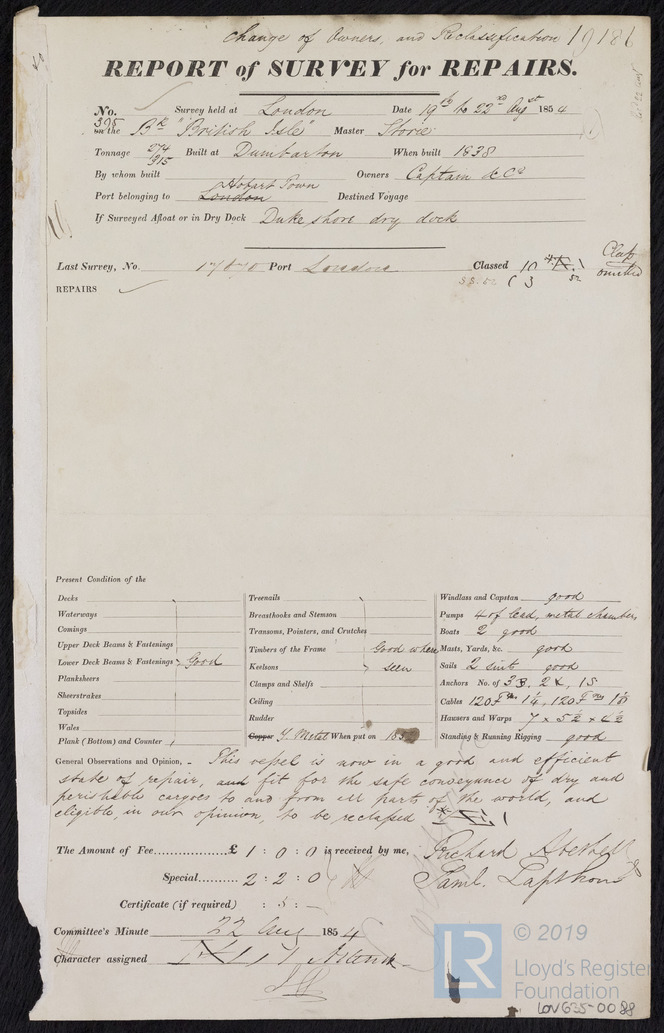 Change of Owners, and Reclassification 19186
REPORT of SURVEY for REPAIRS.
No. 395 Survey held at London Date 19th to 22nd Augst 1854
on the Bk "British Isle" Master Storie
Tonnage 274 915 Built at Dumbarton When built 1838
By whom built Owners Captain & Co
Port belonging to Hobart Town London Destined Voyage
If Surveyed Afloat or in Dry Dock Duke shore dry dock
Last Survey, No. 17870 Port London Classed 10 Class omitted
REPAIRS
Present Condition of the
Decks
Waterways
Comings
Upper Deck Beams & Fastenings
Lower Deck Beams & Fastenings Good
Planksheers
Sheerstrakes
Topsides
Wales
Plank (Bottom) and Counter
Treenails
Breasthooks and Stemson
Transoms, Pointers, and Crutches
Timbers of the Frame Good where
Keelsons seen
Clamps and Shelfs
Ceiling
Rudder
Copper Y. Metal When put on 185
Windlass and Capstan good
Pumps 4 of lead, metal chambers
Boats 2 good
Masts, Yards, &c. good
Sails 2 suits good
Anchors No. of 3 B, 2 K, 1 S
Cables 120 Fms 1 1/4, 120 Fms 1 1/8
Hawsers and Warps 7 x 5 1/2 x 4 1/2
Standing & Running Rigging good
General Observations and Opinion, - This vessel is now in a good and efficient
state of repair, and fit for the safe conveyance of dry and
perishable cargoes to and from all parts of the world, and
eligible, in our opinion, to be reclassed
The Amount of Fee £ 1 : 0 : 0 is received by me, Richard
Special 2 : 2 : 0 Saml. Lapthorn
Certificate (if required) : 5 : -
Committee's Minute 22 Aug 1854
Character assigned
© 2019
LR Lloyd's Register
Foundation
LON635-0088